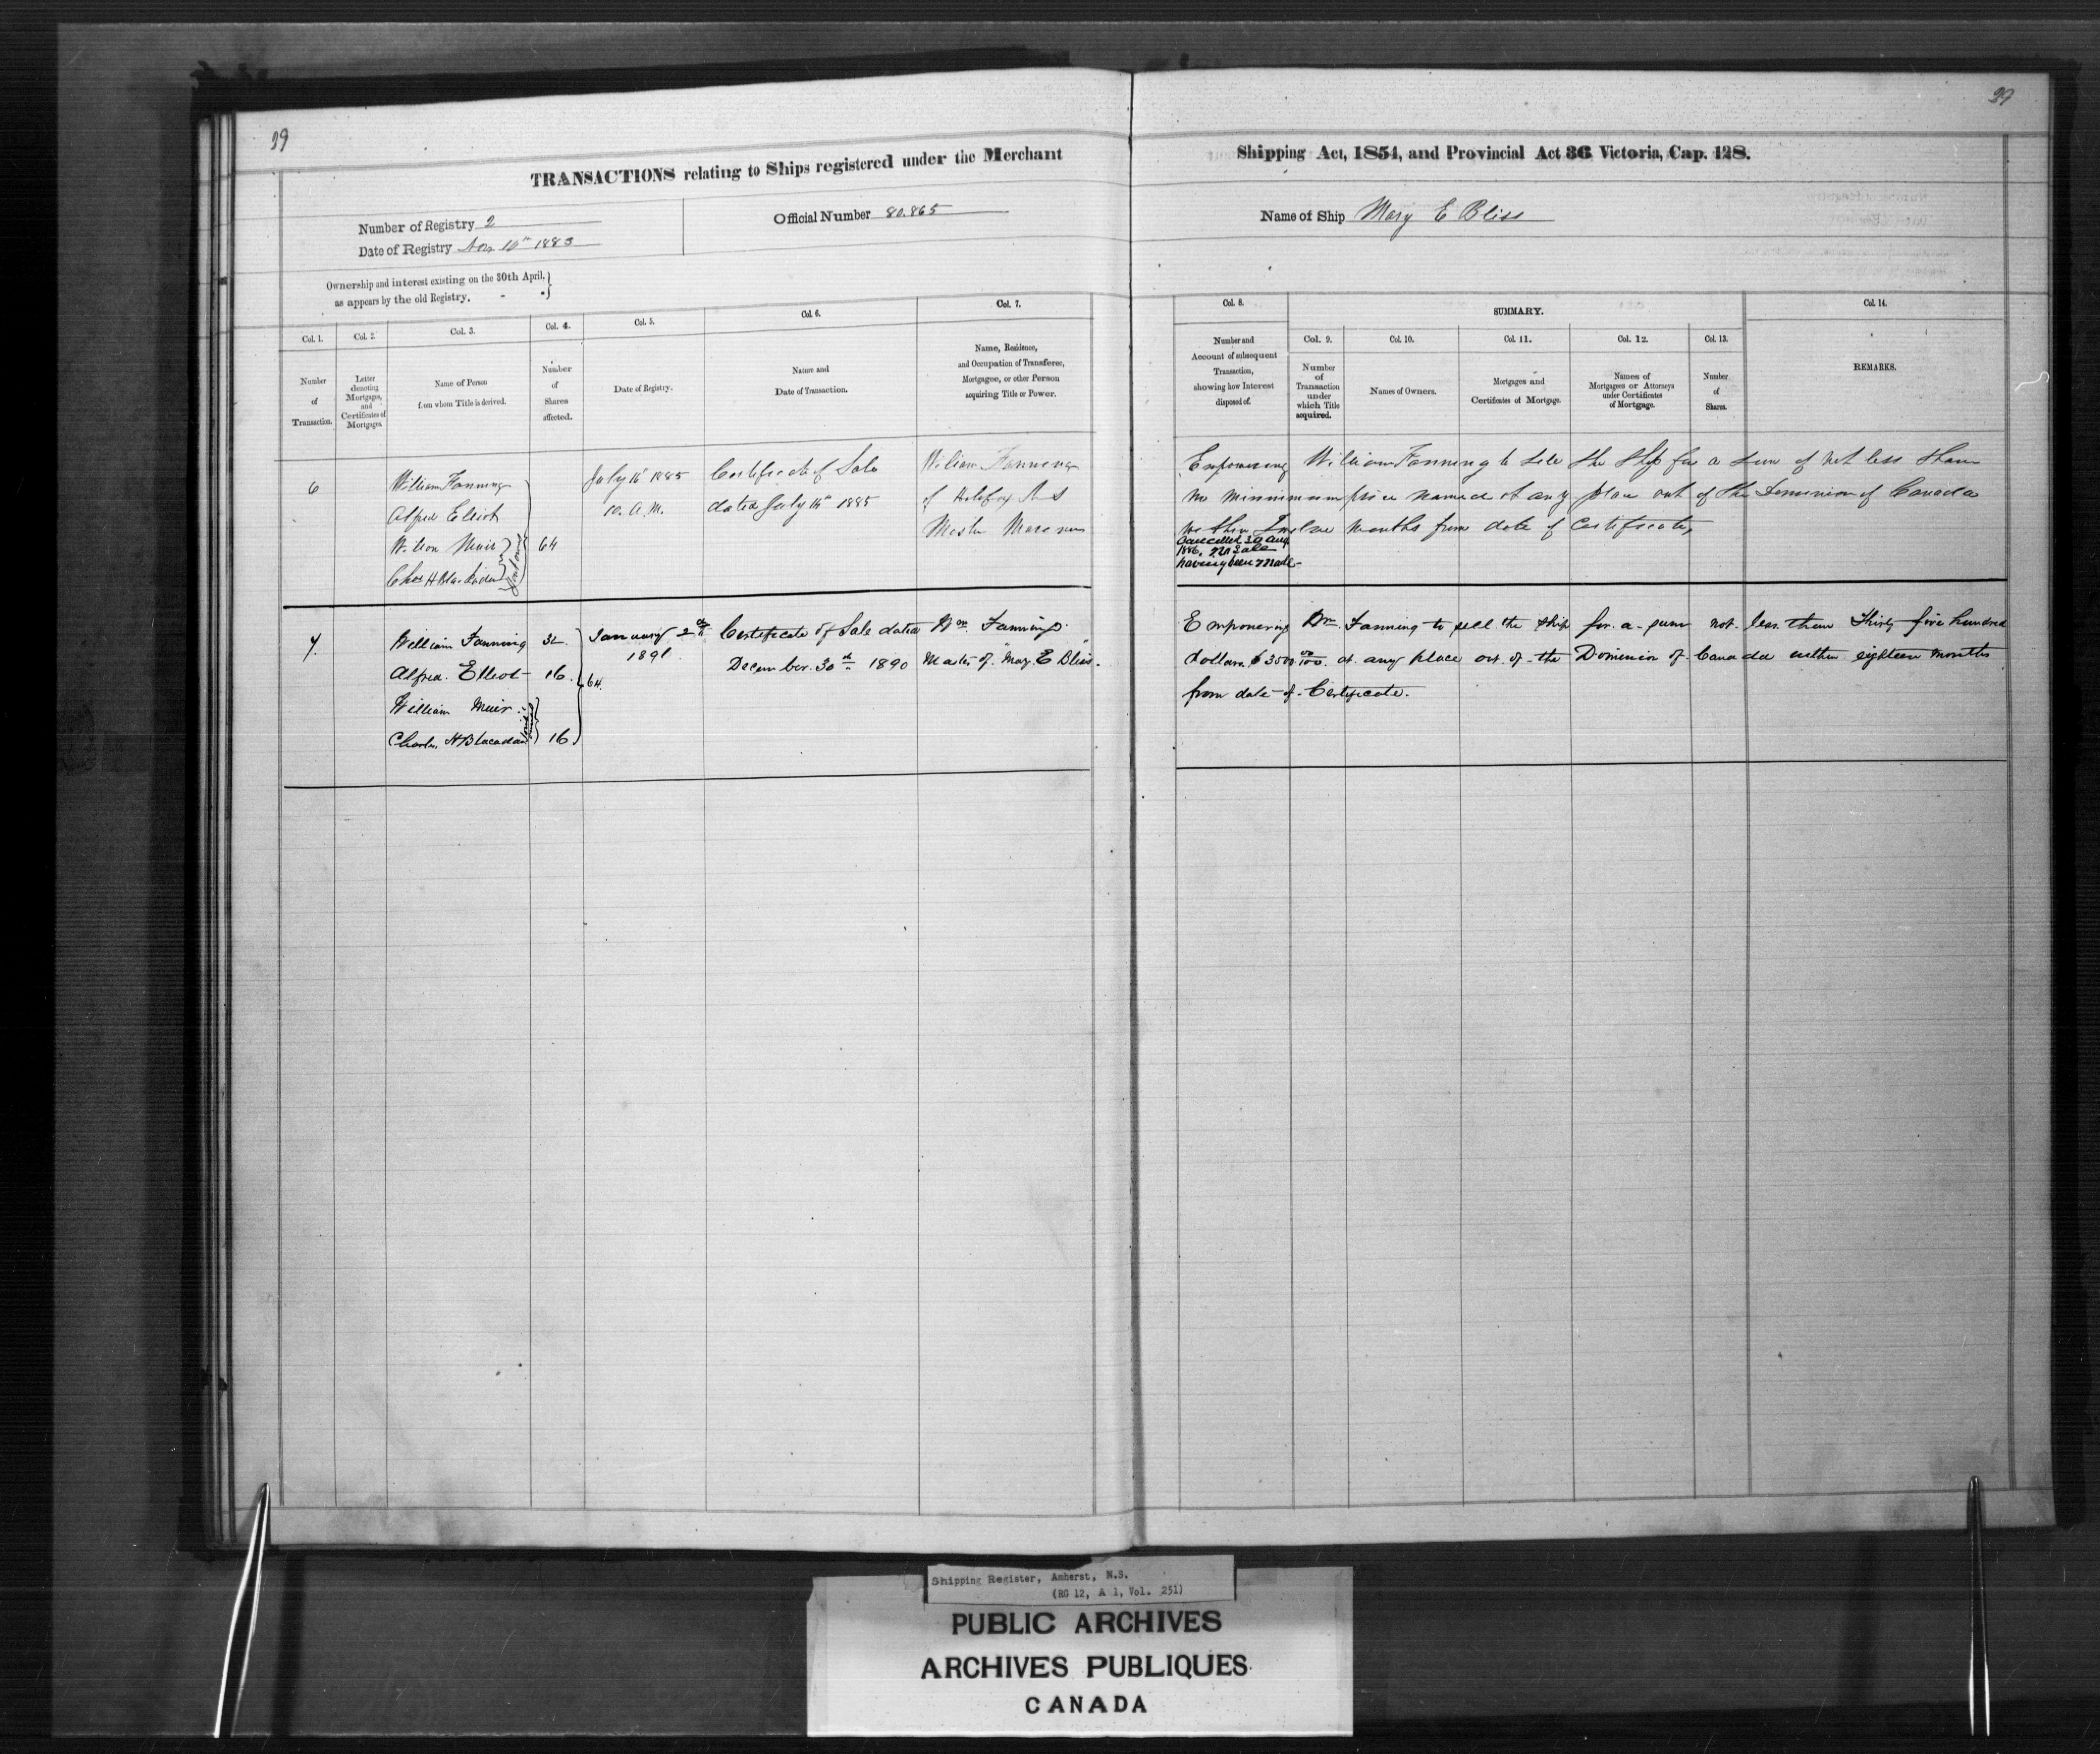 39
39
TRANSACTIONS relating to Ships registered under the Merchant
Shipping Act, 1854, and Provincial Act 36 Victoria, Cap. 128.
Number of Registry 2
Official Number 80.865
Name of Ship Mary E Bliss
Date of Registry Nov 10th 1883
Ownership and interest existing on the 30th April,
as appears by the old Registry.
Col. 1.
Col. 2.
Col. 3.
Col. 4.
Col. 5.
Col. 6.
Col. 7.
Number
of
Transaction.
Letter
denoting
Mortgages,
and
Certificates of
Mortgages.
Name of Person
from whom Title is derived.
Number
of
Shares
affected.
Date of Registry.
Nature and
Date of Transaction.
Name, Residence,
and Occupation of Transferee,
Mortgagee, or other Person
acquiring Title or Power.
Col. 8.
SUMMARY.
Col. 14.
Col. 9.
Col. 10.
Col. 11.
Col. 12.
Col. 13.
Number and
Account of subsequent
Transaction,
showing how Interest
disposed of.
Number
of
Transaction
under
which Title
acquired.
Names of Owners.
Mortgages and
Certificates of Mortgage.
Names of
Mortgagees or Attorneys
under Certificates
of Mortgage.
Number
of
Shares.
REMARKS.
6
William Fanning
Alfred Elliot
Wilson Muir
Chas H Blackadar
Joint owners
64
July 16th 1885
10. A.M.
Certificate of Sale
dated July 15th 1885
William Fanning
of Halifax N S
Master Mariner
Empowering William Fanning to sell the Ship for a sum of not less than
no minimum price named at any place out of the Dominion of Canada
within Twelve months from date of Certificate,
Cancelled 30 Aug
1886, no Sale
having been made-
7
William Fanning 32
Alfred. Elliot 16
William Muir
Charles, H Blacadar 16
Joint owners
64.
January 2nd
1891
Certificate of Sale dated
December. 30th 1890
Wm. Fanning.
Master of "Mary. E Bliss".
Empowering Wm. Fanning to sell the ship for a sum not less than Thirty five hundred
dollars. $3500 00/100. at any place out. of. the Dominion of Canada within eighteen months
from date of Certificate.
Shipping Register, Amherst, N.S.
(RG 12, A 1, Vol. 251)
PUBLIC ARCHIVES
ARCHIVES PUBLIQUES
CANADA